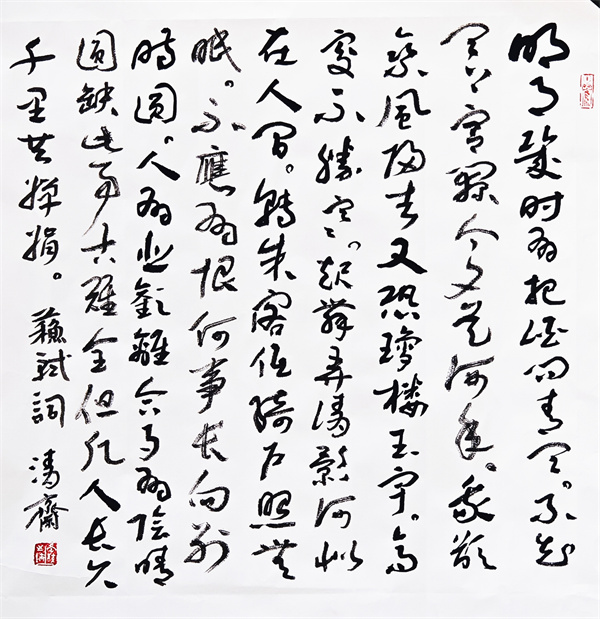 明月幾时有把酒问青天。不知
天上宫阙今夕是何年。我欲
乘風归去又恐瓊楼玉宇。高
處不勝寒。起舞弄清影何似
在人间。轉朱阁低绮户照無
眠。不應有恨何事长向别
時圆。人有悲歡離合月有陰晴
圆缺此事古難全但願人长久
千里共婵娟。蘇軾詞 清齋